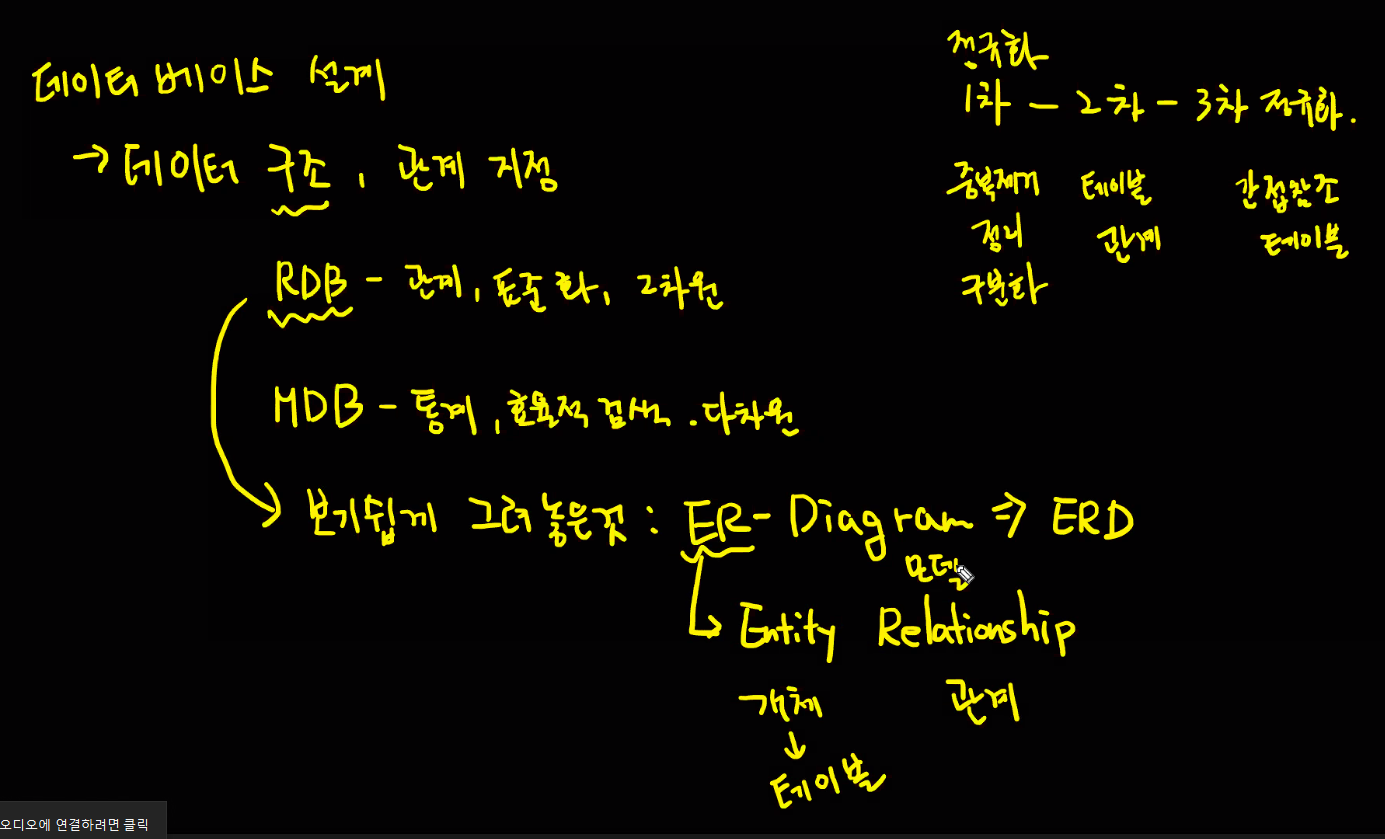 데이터 베이스 설계
→ 데이터 구조, 관계 지정
RDB - 관계, 표준화, 2차원
MDB - 통계, 효율적 검색. 다차원
보기쉽게 그려놓은것 : ER-Diagram ⇒ ERD
모델
Entity Relationship
개체 관계
↓
테이블
정규화
1차 - 2차 - 3차 정규화.
중복제거 테이블 간접참조
정리 관계 테이블
구분화
오디오에 연결하려면 클릭